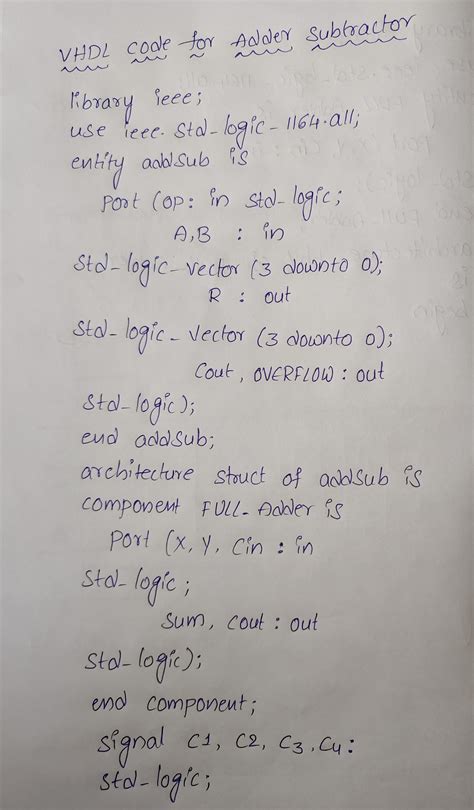 VHDL code for Adder Subtractor
library ieee;
use ieee. std-logic-1164.all;
entity addsub is
Port (OP: in std-logic;
A,B : in
std-logic-vector (3 downto 0);
R : out
std-logic-vector (3 downto 0);
Cout, OVERFLOW : out
std-logic);
end addsub;
architecture struct of addsub is
component FULL-Adder is
Port (X, Y, Cin : in
std-logic;
sum, cout : out
std-logic);
end component;
signal C1, C2, C3, C4:
std-logic;